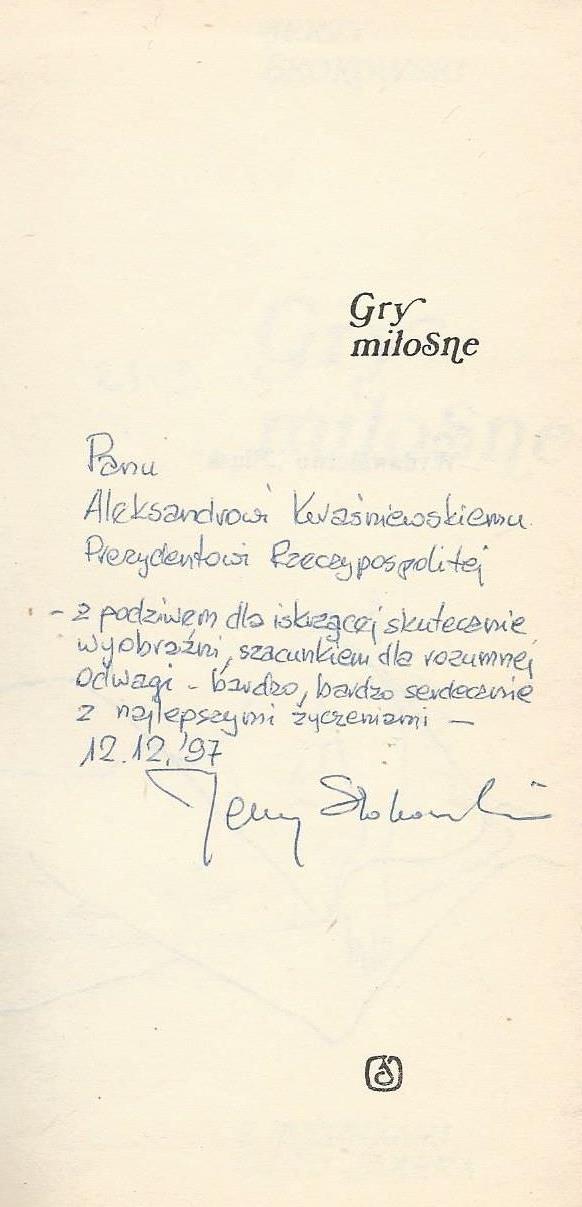 Gry
miłosne
Panu
Aleksandrowi Kwaśniewskiemu
Prezydentowi Rzeczypospolitej
- z podziwem dla iskrzącej skutecznie
wyobraźni, szacunkiem dla rozumnej
odwagi - bardzo, bardzo serdecznie
z najlepszymi życzeniami -
12.12.'97
Jerzy